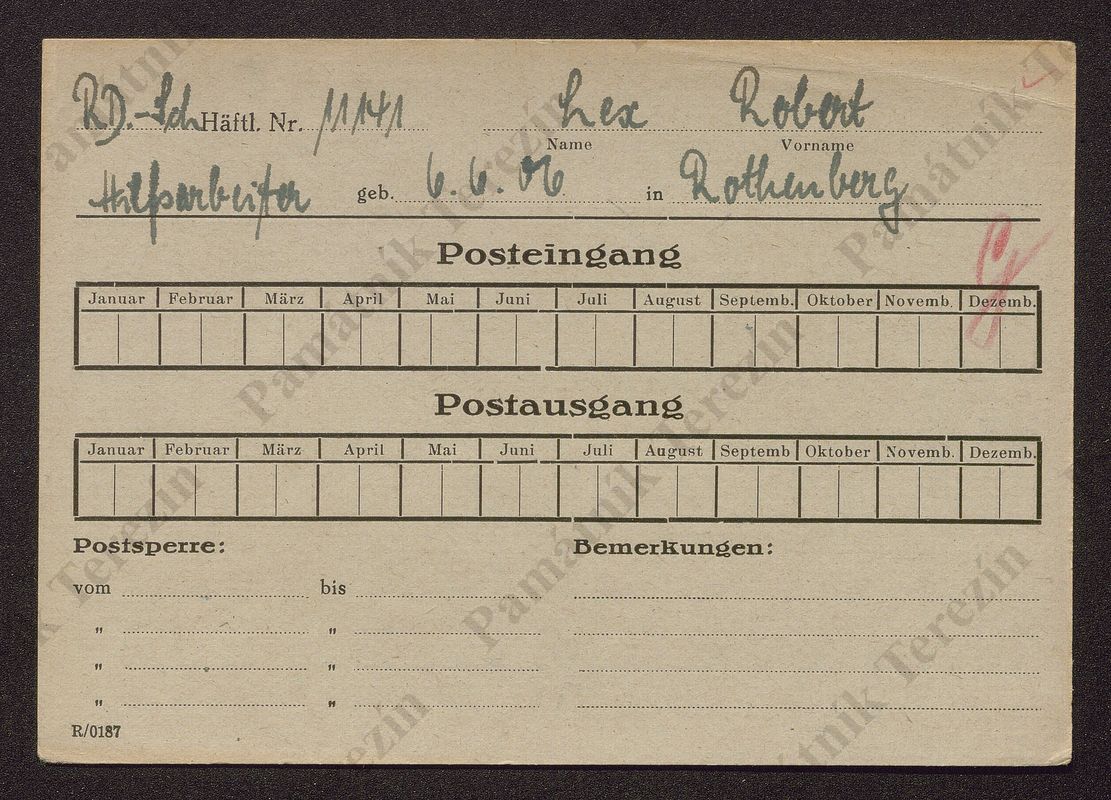 RD.-Sch Häftl. Nr. 11141 Lex Robert
Name Vorname
Hilfsarbeiter geb. 6. 6. 06 in Rothenberg
Posteingang
Januar Februar März April Mai Juni Juli August Septemb. Oktober Novemb. Dezemb.
Postausgang
Januar Februar März April Mai Juni Juli August Septemb Oktober Novemb. Dezemb.
Postsperre: Bemerkungen:
vom bis
" "
" "
" "
R/0187
Památník Terezín